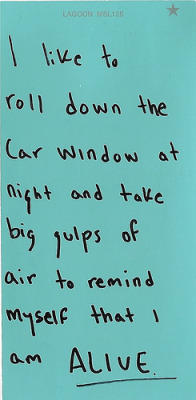 LAGOON
I like to
roll down the
Car window at
night and take
big gulps of
air to remind
myself that I
am ALIVE.